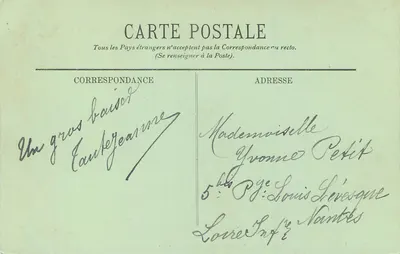 CARTE POSTALE
Tous les Pays étrangers n'acceptent pas la Correspondance au recto.
(Se renseigner à la Poste).
CORRESPONDANCE
Un gros baiser
Tante Jeanne
ADRESSE
Mademoiselle
Yvonne Petit
5 bis Pge Louis Lévesque
Nantes
Loire Infre